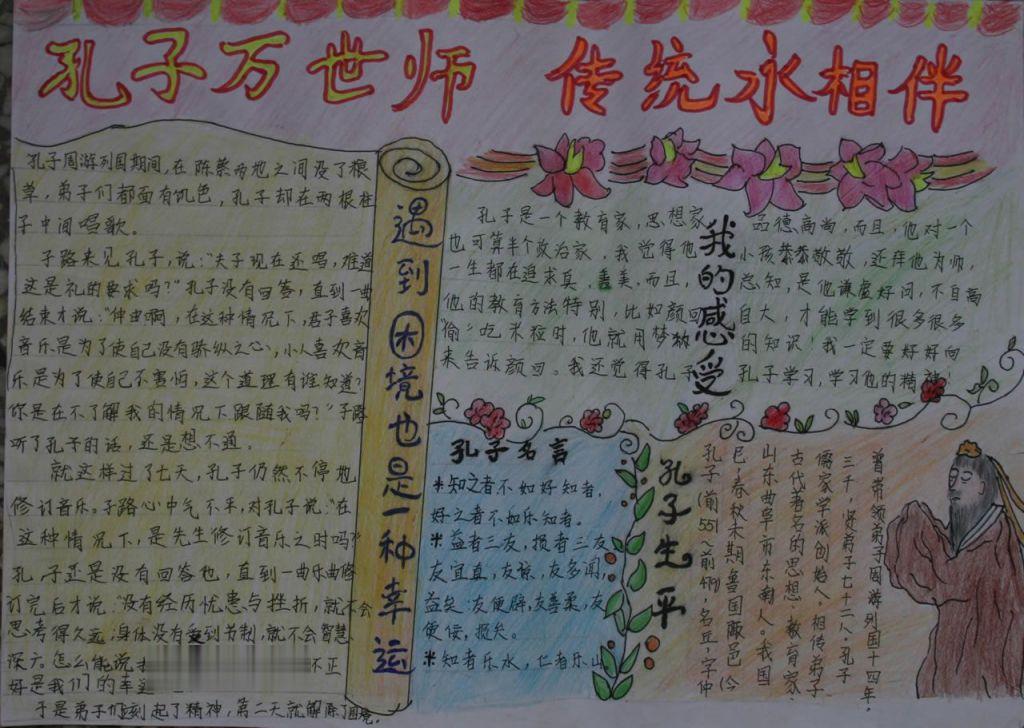 孔子万世师 传统永相伴
孔子周游列国期间,在陈蔡两地之间没了粮
草,弟子们都面有饥色,孔子却在两根柱
子中间唱歌。
子路来见孔子,说:“夫子现在还唱,难道
这是礼的要求吗?”孔子没有回答,直到一曲
结束才说:“仲由啊,在这种情况下,君子喜欢
音乐是为了使自己没有骄纵之心,小人喜欢音
乐是为了使自己不害怕,这个道理有谁知道?
你是在不了解我的情况下跟随我吗?”子路
听了孔子的话,还是想不通。
就这样过了七天,孔子仍然不停地
修订音乐。子路心中气不平,对孔子说:“在
这种情况下,是先生修订音乐之时吗?”
孔子还是没有回答他,直到一曲乐曲修
订完后才说:“没有经历忧患与挫折,就不会
思考得久远;身体没有受到节制,就不会智慧
深广。怎么能说 不正
好是我们的幸运
于是弟子们立刻起了精神,第二天就解除了困境。
遇到困境也是一种幸运
我的感受
孔子是一个教育家,思想家
也可算半个政治家,我觉得他
一生都在追求真、善美,而且,
他的教育方法特别,比如颜回
“偷”吃米粒时,他就用梦
来告诉颜回。我还觉得孔子
品德高尚,而且,他对一个
小孩恭恭敬敬,还拜他为师,
总知,是他谦虚好问,不自高
自大,才能学到很多很多
的知识!我一定要好好向
孔子学习,学习他的精神!
孔子名言
*知之者不如好知者,
好之者不如乐知者。
*益者三友,损者三友
友宜直,友谅,友多闻,
益矣;友便辟,友善柔,友
便佞,损矣。
*知者乐水,仁者乐山
孔子生平
孔子(前551~前479),名丘,字仲
尼,春秋末期鲁国陬邑(今
山东曲阜市东南人。我国
古代著名的思想、教育家、
儒家学派创始人。相传弟子
三千,贤弟子七十二人,孔子
曾带领弟子周游列国十四年。